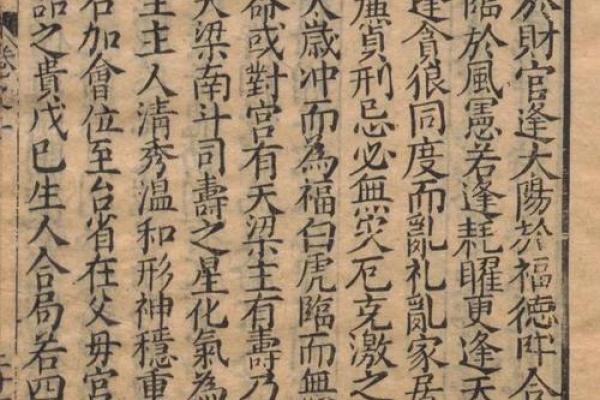 於財官逢太陽於福德合
臨於風憲若逢耗曜更逢天
逢貪狼同度而亂礼亂家居
廉貞刑忌必無災厄克激之
大歲冲而為福白虎臨而無
命或對宮有天梁主有壽乃
天梁南斗司壽之星化氣為
主主人清秀温和形神穩重
右加會位至台省在父毋宮
品之貴戊巳生人合局若四
卷之